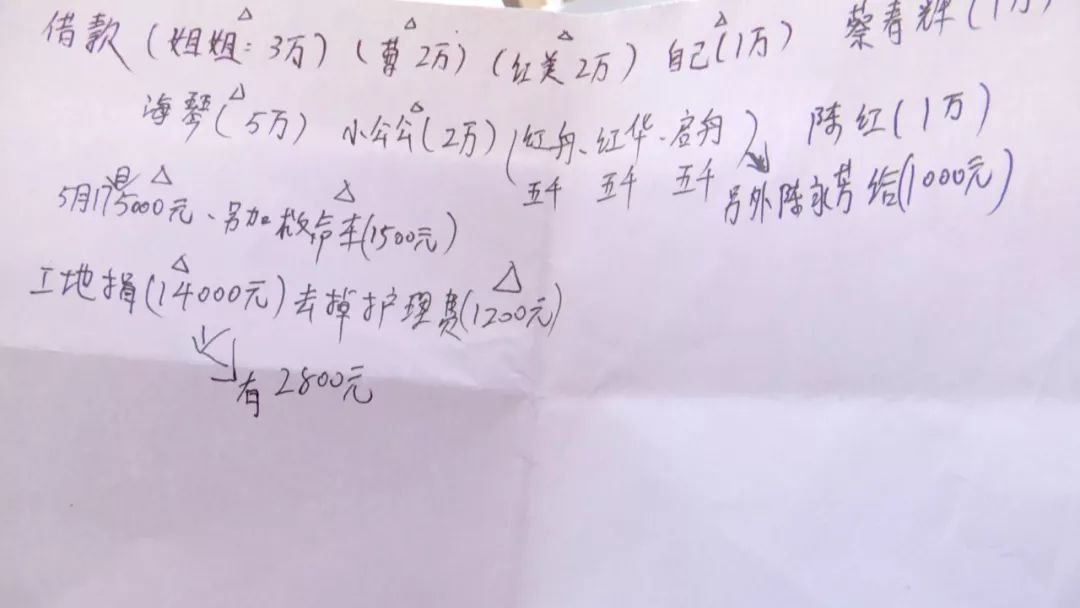 借款（姐姐：3万）（曹2万）（红美2万）自己（1万） 蔡春辉（1万）
海琴（5万） 小公公（2万）（红舟、红华、启舟） 陈红（1万）
五千 五千 五千 另外陈永芳给（1000元）
5月17日5000元、另加救命车（1500元）
工地捐（14000元）去掉护理费（1200元）
有2800元